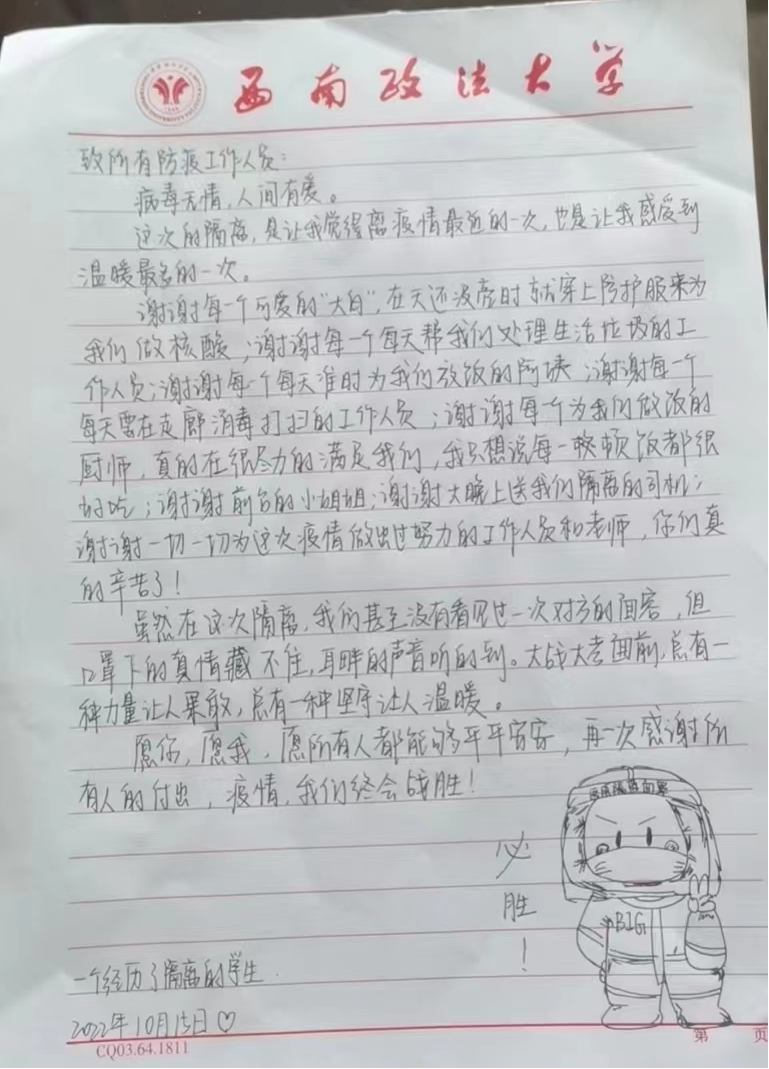 西南政法大学
致所有防疫工作人员：
病毒无情，人间有爱。
这次的隔离，是让我觉得离疫情最近的一次，也是让我感受到
温暖最多的一次。
谢谢每一个可爱的“大白”，在天还没亮时就穿上防护服来为
我们做核酸；谢谢每一个每天帮我们处理生活垃圾的工
作人员；谢谢每一个每天准时为我们放饭的阿姨；谢谢每一个
每天要在走廊消毒打扫的工作人员；谢谢每一个为我们做饭的
厨师，真的在很尽力的满足我们，我只想说每一顿饭都很
好吃；谢谢前台的小姐姐；谢谢大晚上送我们隔离的司机；
谢谢一切一切为这次疫情做出过努力的工作人员和老师，你们真
的辛苦了！
虽然在这次隔离，我们甚至没有看见过一次对方的面容，但
口罩下的真情藏不住，耳畔的声音听的到。大战大考面前，总有一
种力量让人果敢，总有一种坚守让人温暖。
愿你，愿我，愿所有人都能够平平安安，再一次感谢所
有人的付出，疫情，我们终会战胜！
必
胜
！
医用隔离面罩
BIG
一个经历了隔离的学生
2022年10月15日♡
CQ03.64.1811
第 页